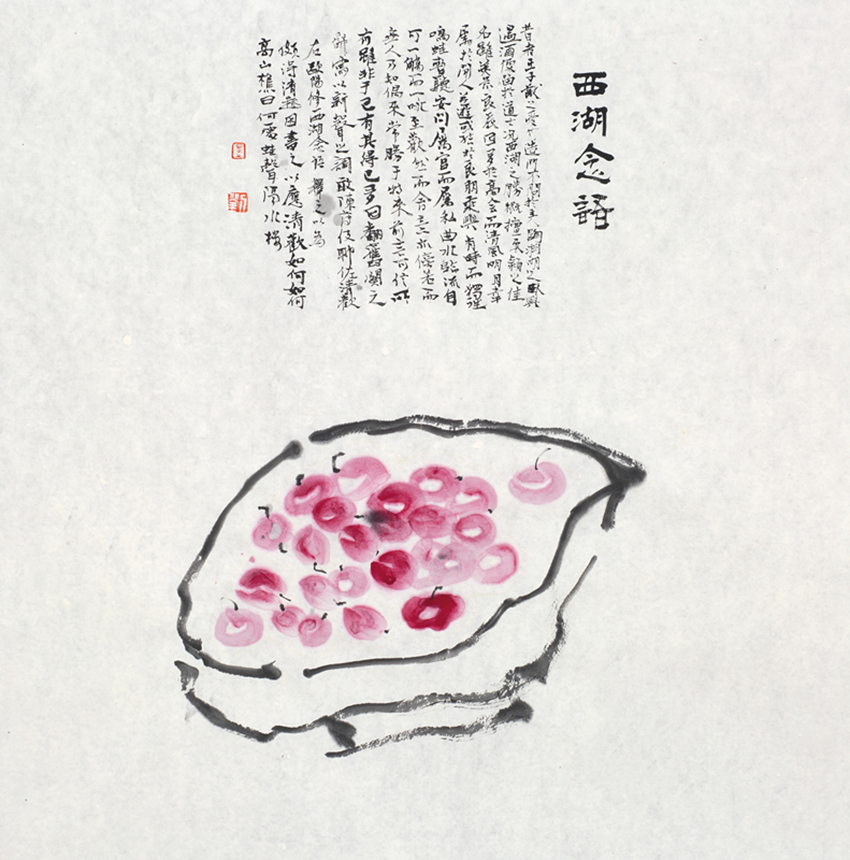 西湖念語
昔者王子猷之愛竹造門不問於主陶淵明之臥輿
遇酒便留於道上況西湖之勝概擅東潁之佳
名雖美景良辰固多於高會而清風明月幸
屬於閒人並遊或結於良朋乘興有時而獨往
鳴蛙暫聽安問屬官而屬私曲水臨流自
可一觴而一詠至歡然而會意亦傍若而
無人乃知偶來常勝于特來前言可信所
有雖非于己有其得已多因翻舊闋之
辭寫以新聲之調敢陳薄伎聊佐清歡
右歐陽修西湖念語之以為
頗得清趣因書之以應清歡如何如何
高山樵曰何處蛙聲隔水